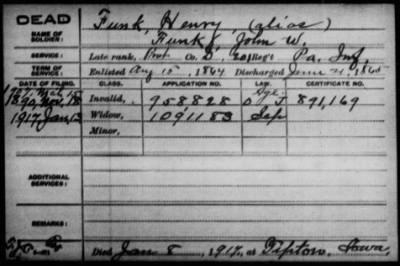 DEAD
NAME OF SOLDIER:
Funk, Henry, (alias)
Funk, John W.
SERVICE:
Late rank, Pvt Co. D, 201 Reg't Pa. Inf.
TERM OF SERVICE:
Enlisted Aug 15, 1864 Discharged June 21, 1865
DATE OF FILING. CLASS. APPLICATION NO. LAW. CERTIFICATE NO.
1890, Nov, 18 Invalid, 958828 891,169
1917, Jan, 13 Widow, 1091183
Minor,
ADDITIONAL SERVICES:
REMARKS:
Died Jan 8, 1917, at Tipton, Iowa,